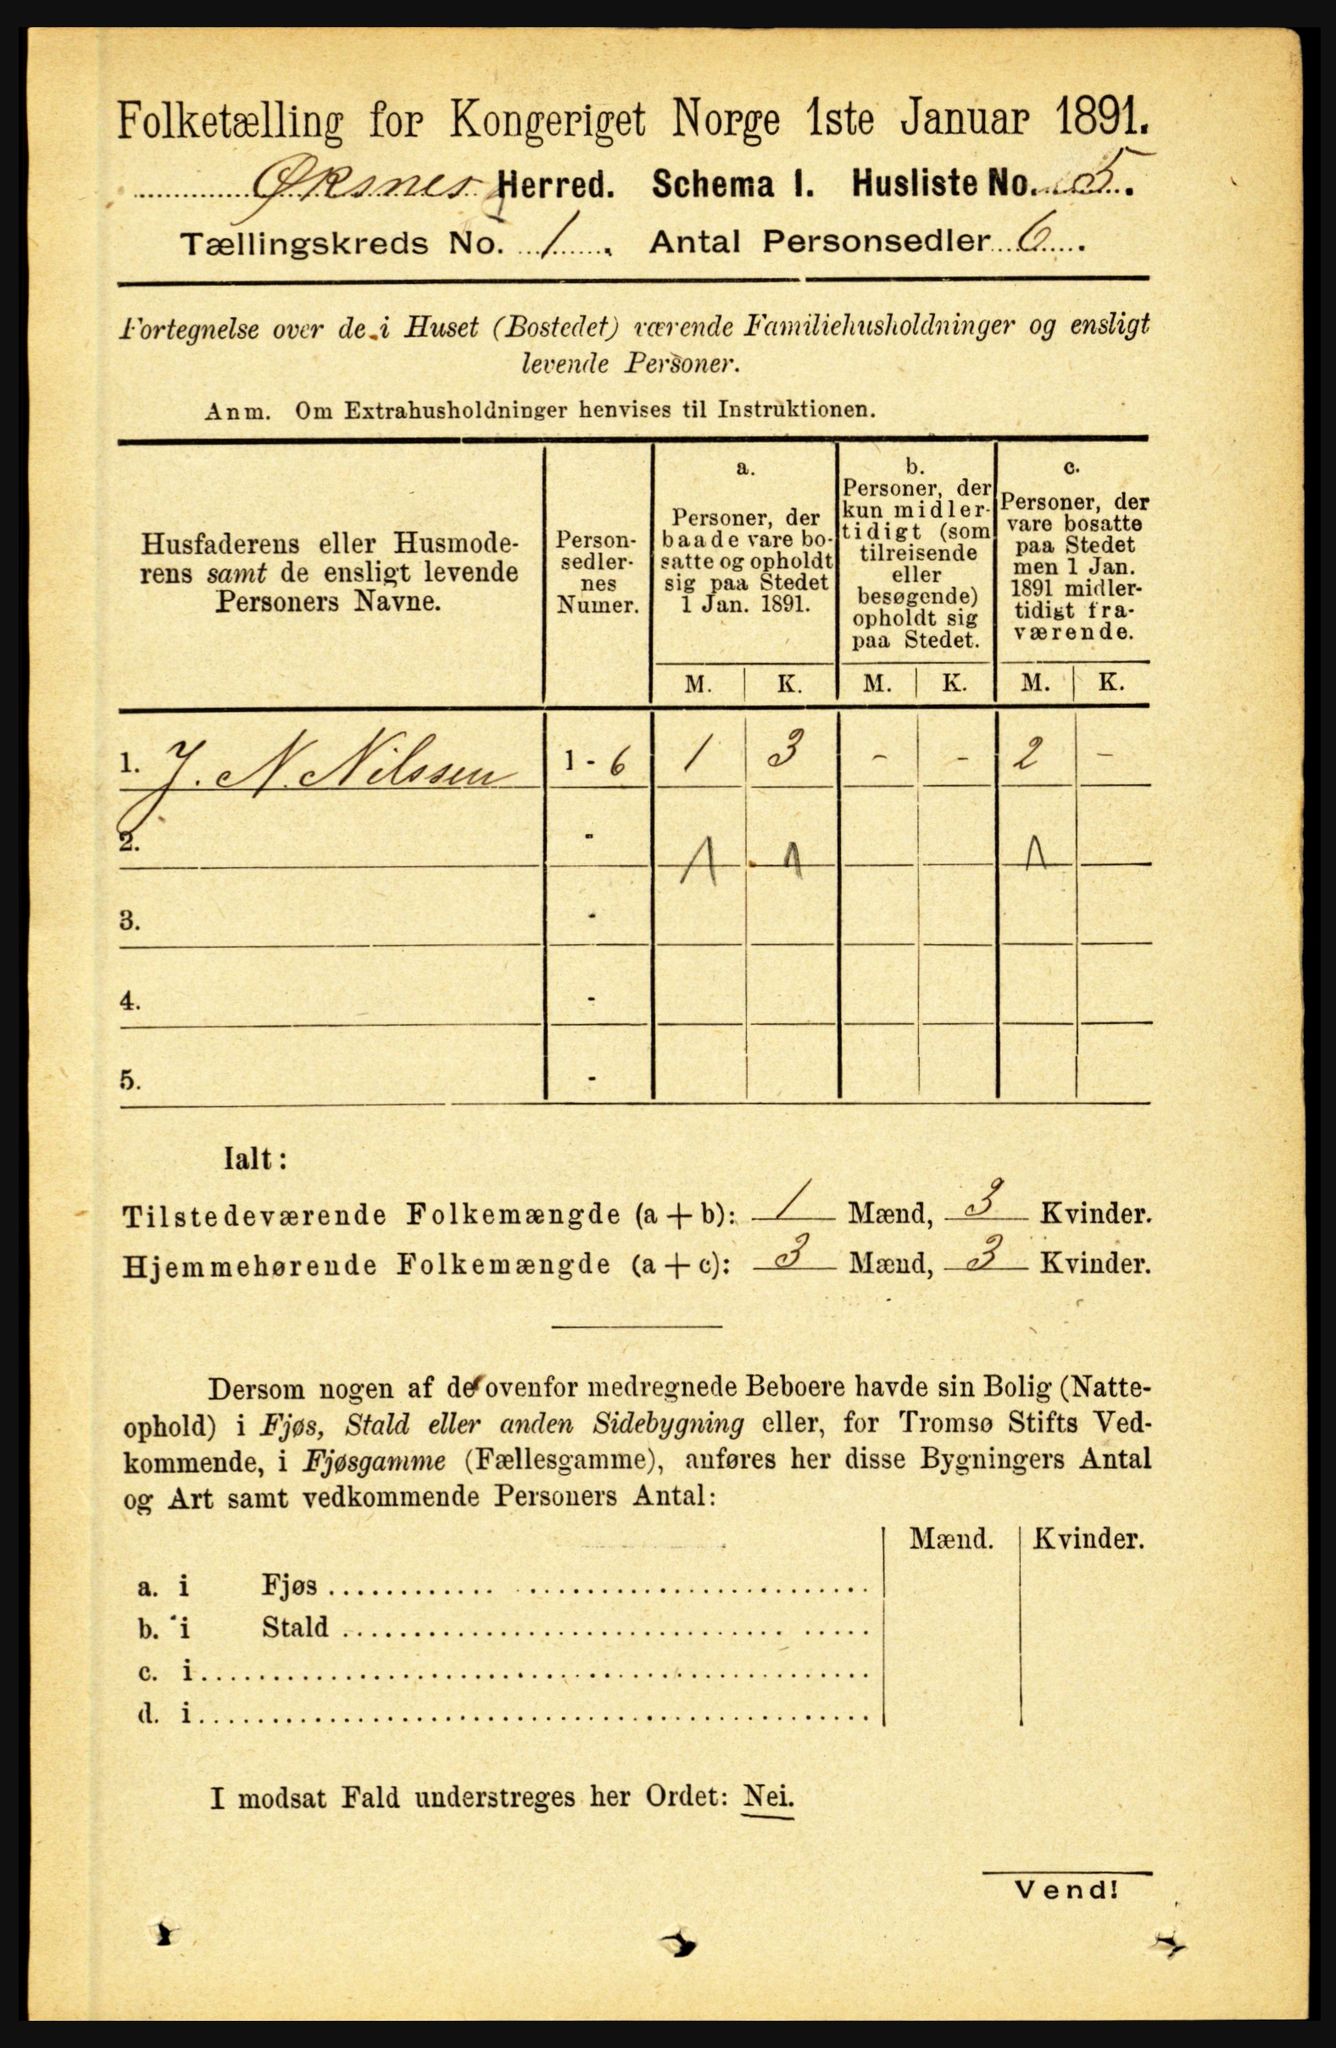 Folketælling for Kongeriget Norge 1ste Januar 1891.
Øksnes Herred. Schema I. Husliste No. 5.
Tællingskreds No. 1. Antal Personsedler 6.
Fortegnelse over de i Huset (Bostedet) værende Familiehusholdninger og ensligt
levende Personer.
Anm. Om Extrahusholdninger henvises til Instruktionen.
Husfaderens eller Husmode-
rens samt de ensligt levende
Personers Navne.
Person-
sedler-
nes
Numer.
a.
Personer, der
baade vare bo-
satte og opholdt
sig paa Stedet
1 Jan. 1891.
b.
Personer, der
kun midler-
tidigt (som
tilreisende
eller
besøgende)
opholdt sig
paa Stedet.
c.
Personer, der
vare bosatte
paa Stedet
men 1 Jan.
1891 midler-
tidigt fra-
værende.
M. K. M. K. M. K.
1. J. N. Nilssen 1 - 6 1 3 - - 2 -
2. - 1 1 1
3. -
4. -
5. -
Ialt:
Tilstedeværende Folkemængde (a + b): 1 Mænd, 3 Kvinder.
Hjemmehørende Folkemængde (a + c): 3 Mænd, 3 Kvinder.
Dersom nogen af de ovenfor medregnede Beboere havde sin Bolig (Natte-
ophold) i Fjøs, Stald eller anden Sidebygning eller, for Tromsø Stifts Ved-
kommende, i Fjøsgamme (Fællesgamme), anføres her disse Bygningers Antal
og Art samt vedkommende Personers Antal:
Mænd. Kvinder.
a. i Fjøs
b. i Stald
c. i
d. i
I modsat Fald understreges her Ordet: Nei.
Vend!